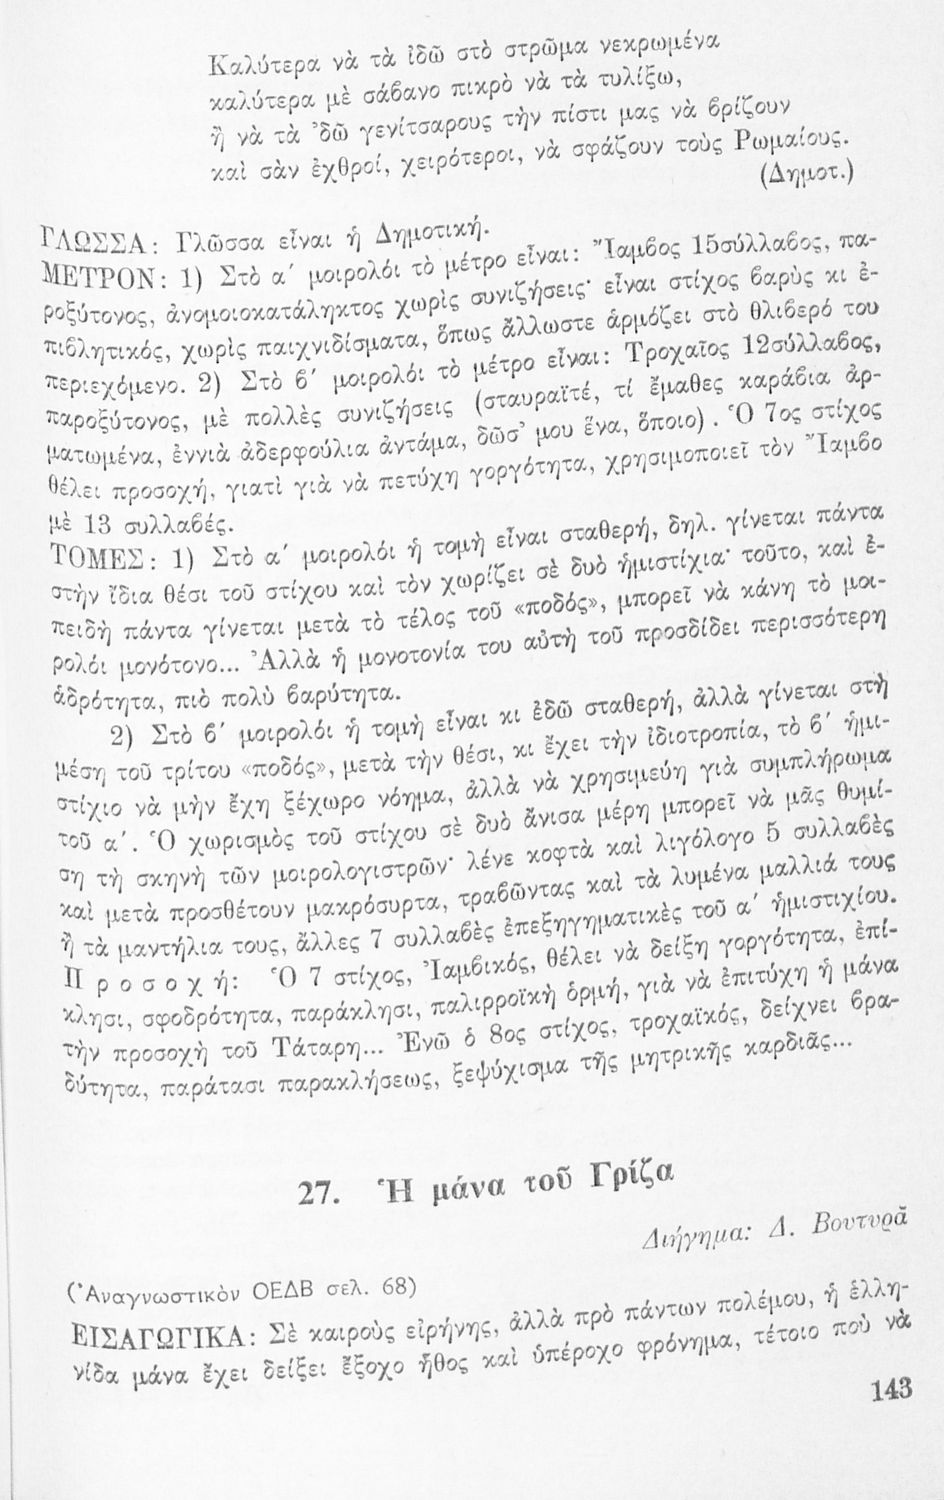 Καλύτερα νὰ τὰ ἰδῶ στὸ στρῶμα νεκρωμένα
καλύτερα μὲ σάβανο πικρὸ νὰ τὰ τυλίξω,
ἢ νὰ τὰ ᾿δῶ γενίτσαρους τὴν πίστι μας νὰ βρίζουν
καὶ σὰν ἐχθροί, χειρότεροι, νὰ σφάζουν τοὺς Ρωμαίους.
(Δημοτ.)
ΓΛΩΣΣΑ: Γλῶσσα εἶναι ἡ Δημοτική.
ΜΕΤΡΟΝ: 1) Στὸ α΄ μοιρολόι τὸ μέτρο εἶναι: Ἴαμβος 15σύλλαβος, πα-
ροξύτονος, ἀνομοιοκατάληκτος χωρὶς συνιζήσεις· εἶναι στίχος βαρὺς κι ἐ-
πιβλητικός, χωρὶς παιχνιδίσματα, ὅπως ἄλλωστε ἁρμόζει στὸ θλιβερό του
περιεχόμενο. 2) Στὸ β΄ μοιρολόι τὸ μέτρο εἶναι: Τροχαῖος 12σύλλαβος,
παροξύτονος, μὲ πολλὲς συνιζήσεις (σταυραϊτέ, τί ἔμαθες καράβια ἀρ-
ματωμένα, ἐννιὰ ἀδερφούλια ἀντάμα, δῶσ᾿ μου ἕνα, ὅποιο). Ὁ 7ος στίχος
θέλει προσοχή, γιατὶ γιὰ νὰ πετύχη γοργότητα, χρησιμοποιεῖ τὸν Ἴαμβο
μὲ 13 συλλαβές.
ΤΟΜΕΣ: 1) Στὸ α΄ μοιρολόι ἡ τομὴ εἶναι σταθερή, δηλ. γίνεται πάντα
στὴν ἴδια θέσι τοῦ στίχου καὶ τὸν χωρίζει σὲ δυὸ ἡμιστίχια· τοῦτο, καὶ ἐ-
πειδὴ πάντα γίνεται μετὰ τὸ τέλος τοῦ «ποδός», μπορεῖ νὰ κάνη τὸ μοι-
ρολόι μονότονο... Ἀλλὰ ἡ μονοτονία του αὐτὴ τοῦ προσδίδει περισσότερη
ἁδρότητα, πιὸ πολὺ βαρύτητα.
2) Στὸ β΄ μοιρολόι ἡ τομὴ εἶναι κι ἐδῶ σταθερή, ἀλλὰ γίνεται στὴ
μέση τοῦ τρίτου «ποδός», μετὰ τὴν θέσι, κι ἔχει τὴν ἰδιοτροπία, τὸ β΄ ἡμι-
στίχιο νὰ μὴν ἔχη ξέχωρο νόημα, ἀλλὰ νὰ χρησιμεύη γιὰ συμπλήρωμα
τοῦ α΄. Ὁ χωρισμὸς τοῦ στίχου σὲ δυὸ ἄνισα μέρη μπορεῖ νὰ μᾶς θυμί-
ση τὴ σκηνὴ τῶν μοιρολογιστρῶν· λένε κοφτὰ καὶ λιγόλογο 5 συλλαβὲς
καὶ μετὰ προσθέτουν μακρόσυρτα, τραβῶντας καὶ τὰ λυμένα μαλλιά τους
ἢ τὰ μαντήλια τους, ἄλλες 7 συλλαβὲς ἐπεξηγηματικὲς τοῦ α΄ ἡμιστιχίου.
Π ρ ο σ ο χ ή: Ὁ 7 στίχος, Ἰαμβικός, θέλει νὰ δείξη γοργότητα, ἐπί-
κλησι, σφοδρότητα, παράκλησι, παλιρροϊκὴ ὁρμή, γιὰ νὰ ἐπιτύχη ἡ μάνα
τὴν προσοχὴ τοῦ Τάταρη... Ἐνῶ ὁ 8ος στίχος, τροχαϊκός, δείχνει βρα-
δύτητα, παράτασι παρακλήσεως, ξεψύχισμα τῆς μητρικῆς καρδιᾶς...
27. Ἡ μάνα τοῦ Γρίζα
Διήγημα: Δ. Βουτυρᾶ
(Ἀναγνωστικὸν ΟΕΔΒ σελ. 68)
ΕΙΣΑΓΩΓΙΚΑ: Σὲ καιροὺς εἰρήνης, ἀλλὰ πρὸ πάντων πολέμου, ἡ ἑλλη-
νίδα μάνα ἔχει δείξει ἔξοχο ἦθος καὶ ὑπέροχο φρόνημα, τέτοιο ποὺ νὰ
143